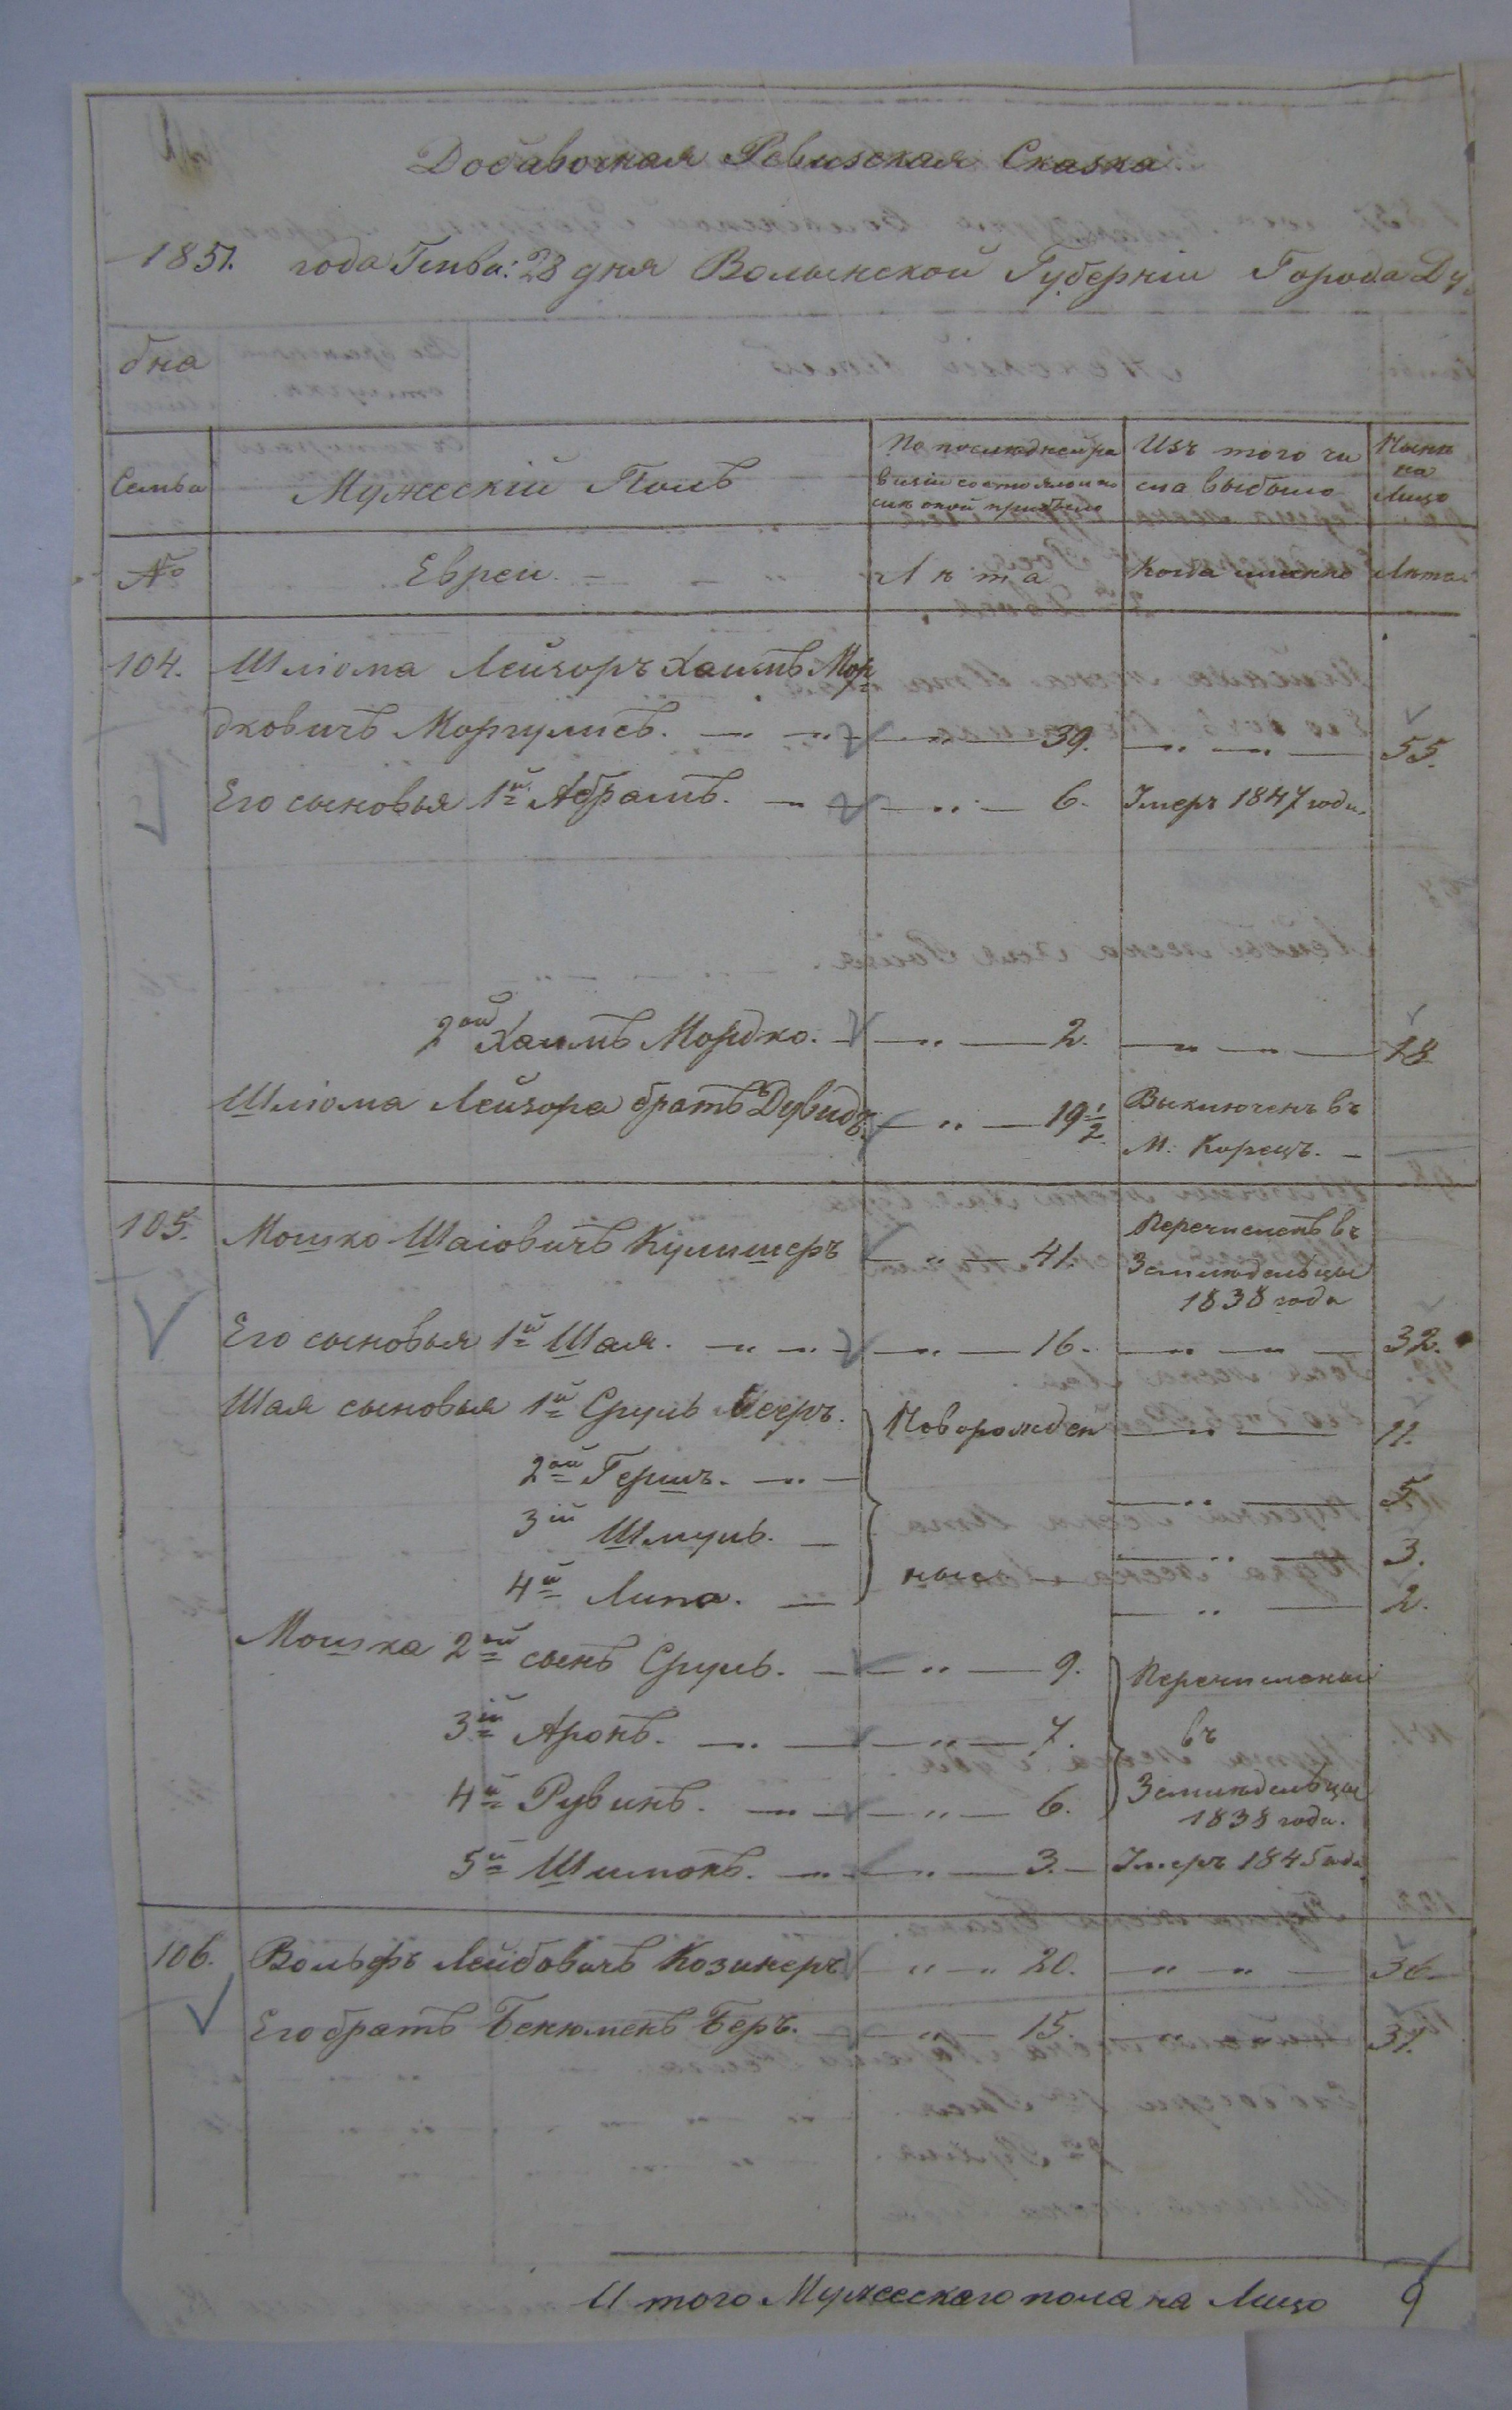 Добавочная Ревизская Сказка.
1851. года Генва: 28 дня Волынской Губерніи Города Ду
бна
Семьи
Мужескій Полъ
По последней ре
визіи состояло и по
слѣ оной прибыло
Изъ того чи
сла выбыло
Нынѣ
на
Лицо
№
Евреи.
Лѣта
Когда именно
Лѣта.
104. Шліома Лейзоръ Хаимъ Мор
дковичъ Моргулисъ. 39. 55.
Его сыновья 1й Абрамъ. 6. Умеръ 1847 года.
2ой Хаимъ Мордко. 2. 18
Шліома Лейзора братъ Дувидъ. 19 1/2. Выключенъ въ
М. Корецъ.
105. Мошко Шаіовичъ Кулишеръ 41. Перечисленъ въ
Земледельцы
1838 года
Его сыновья 1й Шая. 16. 32.
Шая сыновья 1й Сруль Бееръ. Новорожден 11.
2ой Гершъ. 5
3ій Шмуль. 3.
4й Липа. ные 2.
Мошка 2ой сынъ Сруль. 9. Перечислены
3ій Аронъ. 7. въ
4й Рувинъ. 6. Земледельцы
1838 года.
5й Шимонъ. 3. Умеръ 1845 года
106. Вольфъ Лейбовичъ Козинеръ 20. 36.
Его братъ Бенюменъ Беръ. 15. 31.
Итого Мужескаго пола на Лицо 9